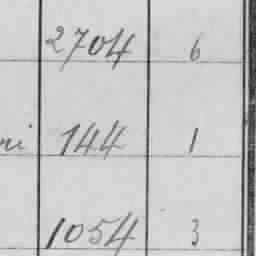 2704 6
144 1
1054 3